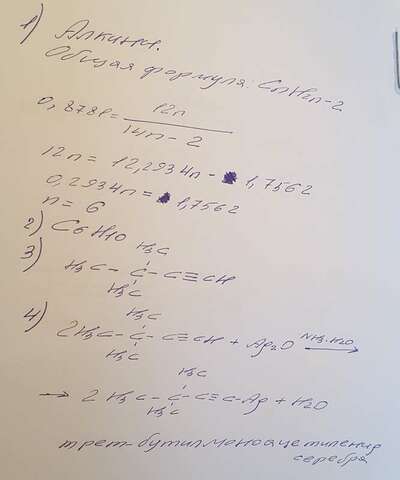 1) Алкины.
Общая формула: CnH2n-2
0,8781 = 12n / 14n - 2
12n = 12,2934n - 1,7562
0,2934n = 1,7562
n = 6
2) C6H10
3)
H3C
H3C - C - C≡CH
H3C
4)
H3C
2H3C - C - C≡CH + Ag2O NH3·H2O →
H3C
H3C
→ 2 H3C - C - C≡C-Ag + H2O
H3C
трет-бутилмоноацетиленид
серебра